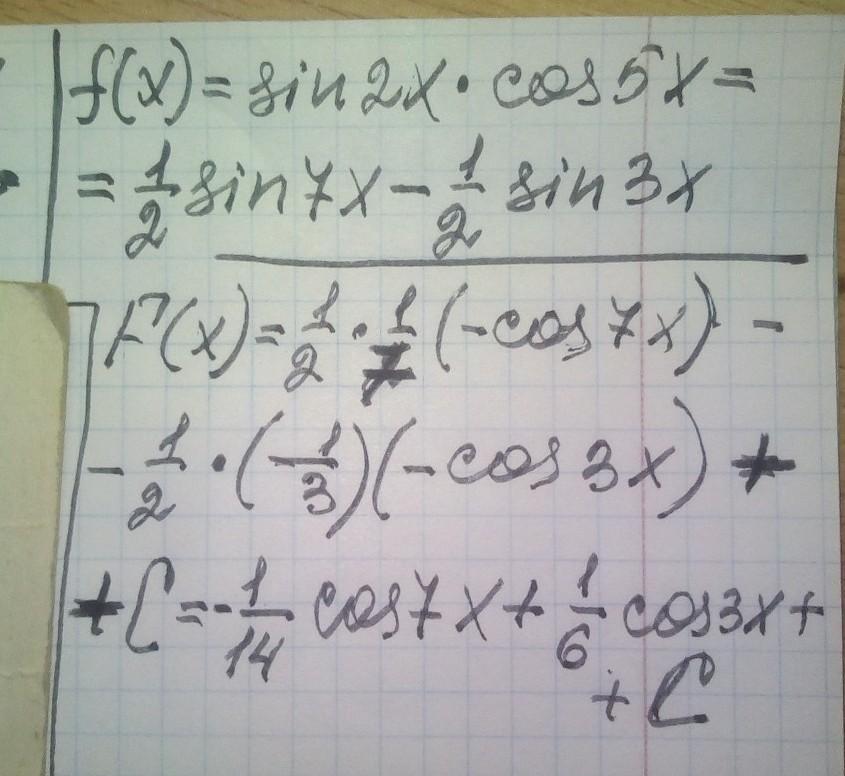 f(x) = sin 2x · cos 5x =
= 1/2 sin 7x - 1/2 sin 3x
F(x) = 1/2 · 1/7 (-cos 7x) -
- 1/2 · (-1/3)(-cos 3x) +
+ C = -1/14 cos 7x + 1/6 cos 3x +
+ C